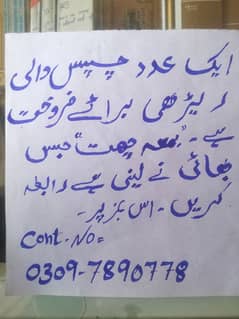 ایک عدد چپس والی
ریڑھی برائے فروخت
ہے۔ "بمعہ چھت" جس
بھائی نے لینی ہے رابطہ
کریں۔ اس نمبر پر۔
Cont. No=
0309-7890778